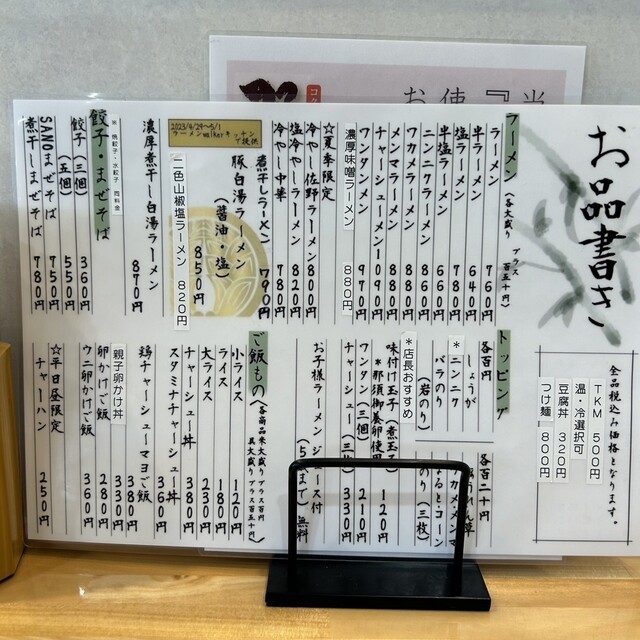 お品書き
全品税込み価格となります。
TKM 500円
温・冷選択可
豆腐丼 320円
つけ麺 800円
ラーメン(各大盛り プラス百五十円)
ラーメン 760円
半ラーメン 640円
塩ラーメン 780円
半塩ラーメン 660円
ニンニクラーメン 860円
ワカメラーメン 880円
メンマラーメン 880円
チャーシューメン 1090円
ワンタンメン 970円
濃厚味噌ラーメン 880円
☆夏季限定
冷やし佐野ラーメン 800円
塩冷やしラーメン 820円
冷やし中華 780円
煮干しラーメン 790円
豚白湯ラーメン(醤油・塩) 850円
2023/4/29〜5/1
ラーメンwalkerキッチンで提供
二色山椒塩ラーメン 820円
濃厚煮干し白湯ラーメン 870円
餃子・まぜそば
※焼餃子・水餃子 同料金
餃子(三個) 360円
(五個) 550円
SANOまぜそば 750円
煮干しまぜそば 780円
トッピング
各百円
しょうが
*ニンニク
バラのり(岩のり)
各百二十円
*店長おすすめ
味付け玉子(煮玉子)
*那須御養卵使用 120円
ワンタン(三個) 210円
チャーシュー 330円
お子様ラーメンジュース付 無料
ご飯もの(各商品米大盛りプラス百円
具大盛りプラス百五十円)
小ライス 120円
ライス 180円
大ライス 230円
チャーシュー丼 380円
スタミナチャーシュー丼 360円
鶏チャーシューマヨご飯 380円
親子卵かけ丼 330円
卵かけご飯 280円
ウニ卵かけご飯 360円
☆平日昼限定
チャーハン 250円